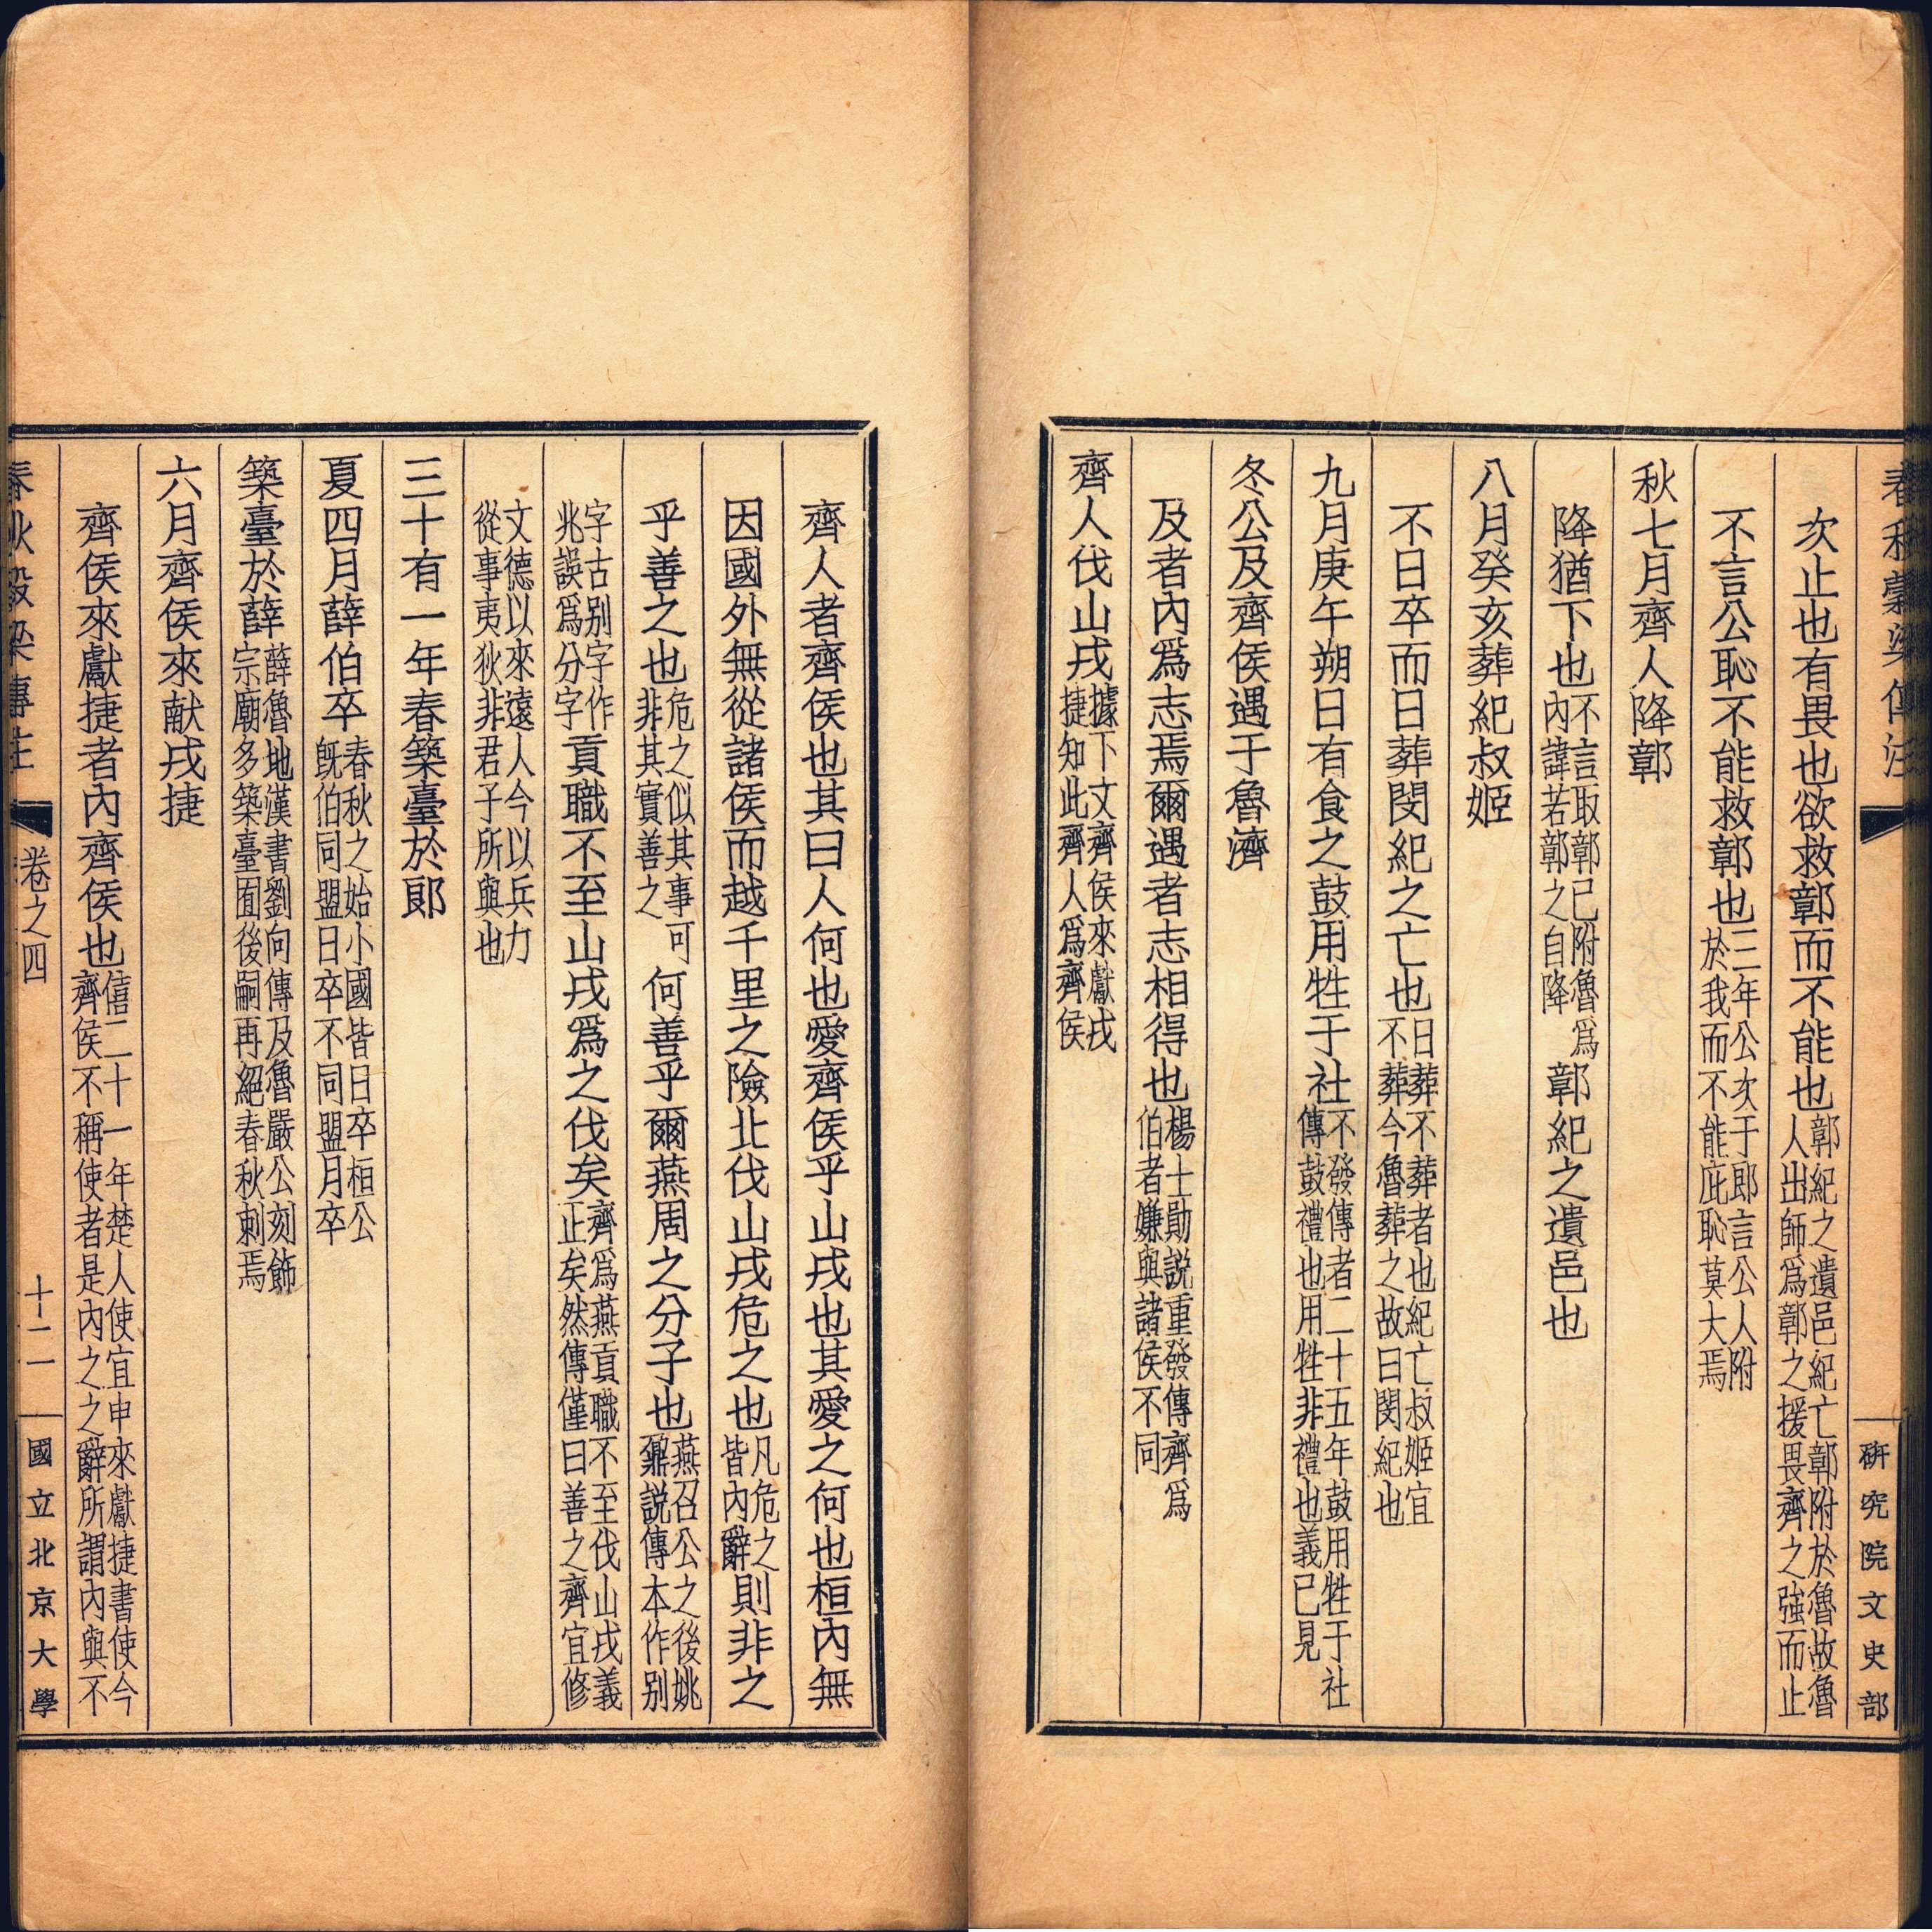 春秋穀梁傳注
研究院文史部
次止也有畏也欲救鄣而不能也鄣紀之遺邑紀亡鄣附於魯故魯人出師爲鄣之援畏齊之強而止
不言公恥不能救鄣也三年公次于郎言公人附於我而不能庇恥莫大焉
秋七月齊人降鄣
降猶下也不言取鄣已附魯爲內諱若鄣之自降鄣紀之遺邑也
八月癸亥葬紀叔姬
不日卒而日葬閔紀之亡也日葬不葬者也紀亡叔姬宜不葬今魯葬之故曰閔紀也
九月庚午朔日有食之鼓用牲于社不發傳者二十五年鼓用牲于社傳鼓禮也用牲非禮也義已見
冬公及齊侯遇于魯濟
及者內爲志焉爾遇者志相得也楊士勛説重發傳齊爲伯者嫌與諸侯不同
齊人伐山戎據下文齊侯來獻戎捷知此齊人爲齊侯
齊人者齊侯也其曰人何也愛齊侯乎山戎也其愛之何也桓內無
因國外無從諸侯而越千里之險北伐山戎危之也凡危之皆內辭則非之
乎善之也危之似其事可非其實善之何善乎爾燕周之分子也燕召公之後姚鼐説傳本作別
字古别字作兆誤爲分字貢職不至山戎爲之伐矣齊爲燕貢職不至伐山戎義止矣然傳僅曰善之齊宜修
文德以來遠人今以兵力從事夷狄非君子所與也
三十有一年春築臺於郎
夏四月薛伯卒春秋之始小國皆日卒桓公旣伯同盟日卒不同盟月卒
築臺於薛薛魯地漢書劉向傳及魯嚴公刻飾宗廟多築臺囿後嗣再絕春秋刺焉
六月齊侯來献戎捷
齊侯來獻捷者內齊侯也僖二十一年楚人使宜申來獻捷書使今齊侯不稱使者是內之之辭所謂內與不
春秋穀梁傳注
卷之四
十二
國立北京大學